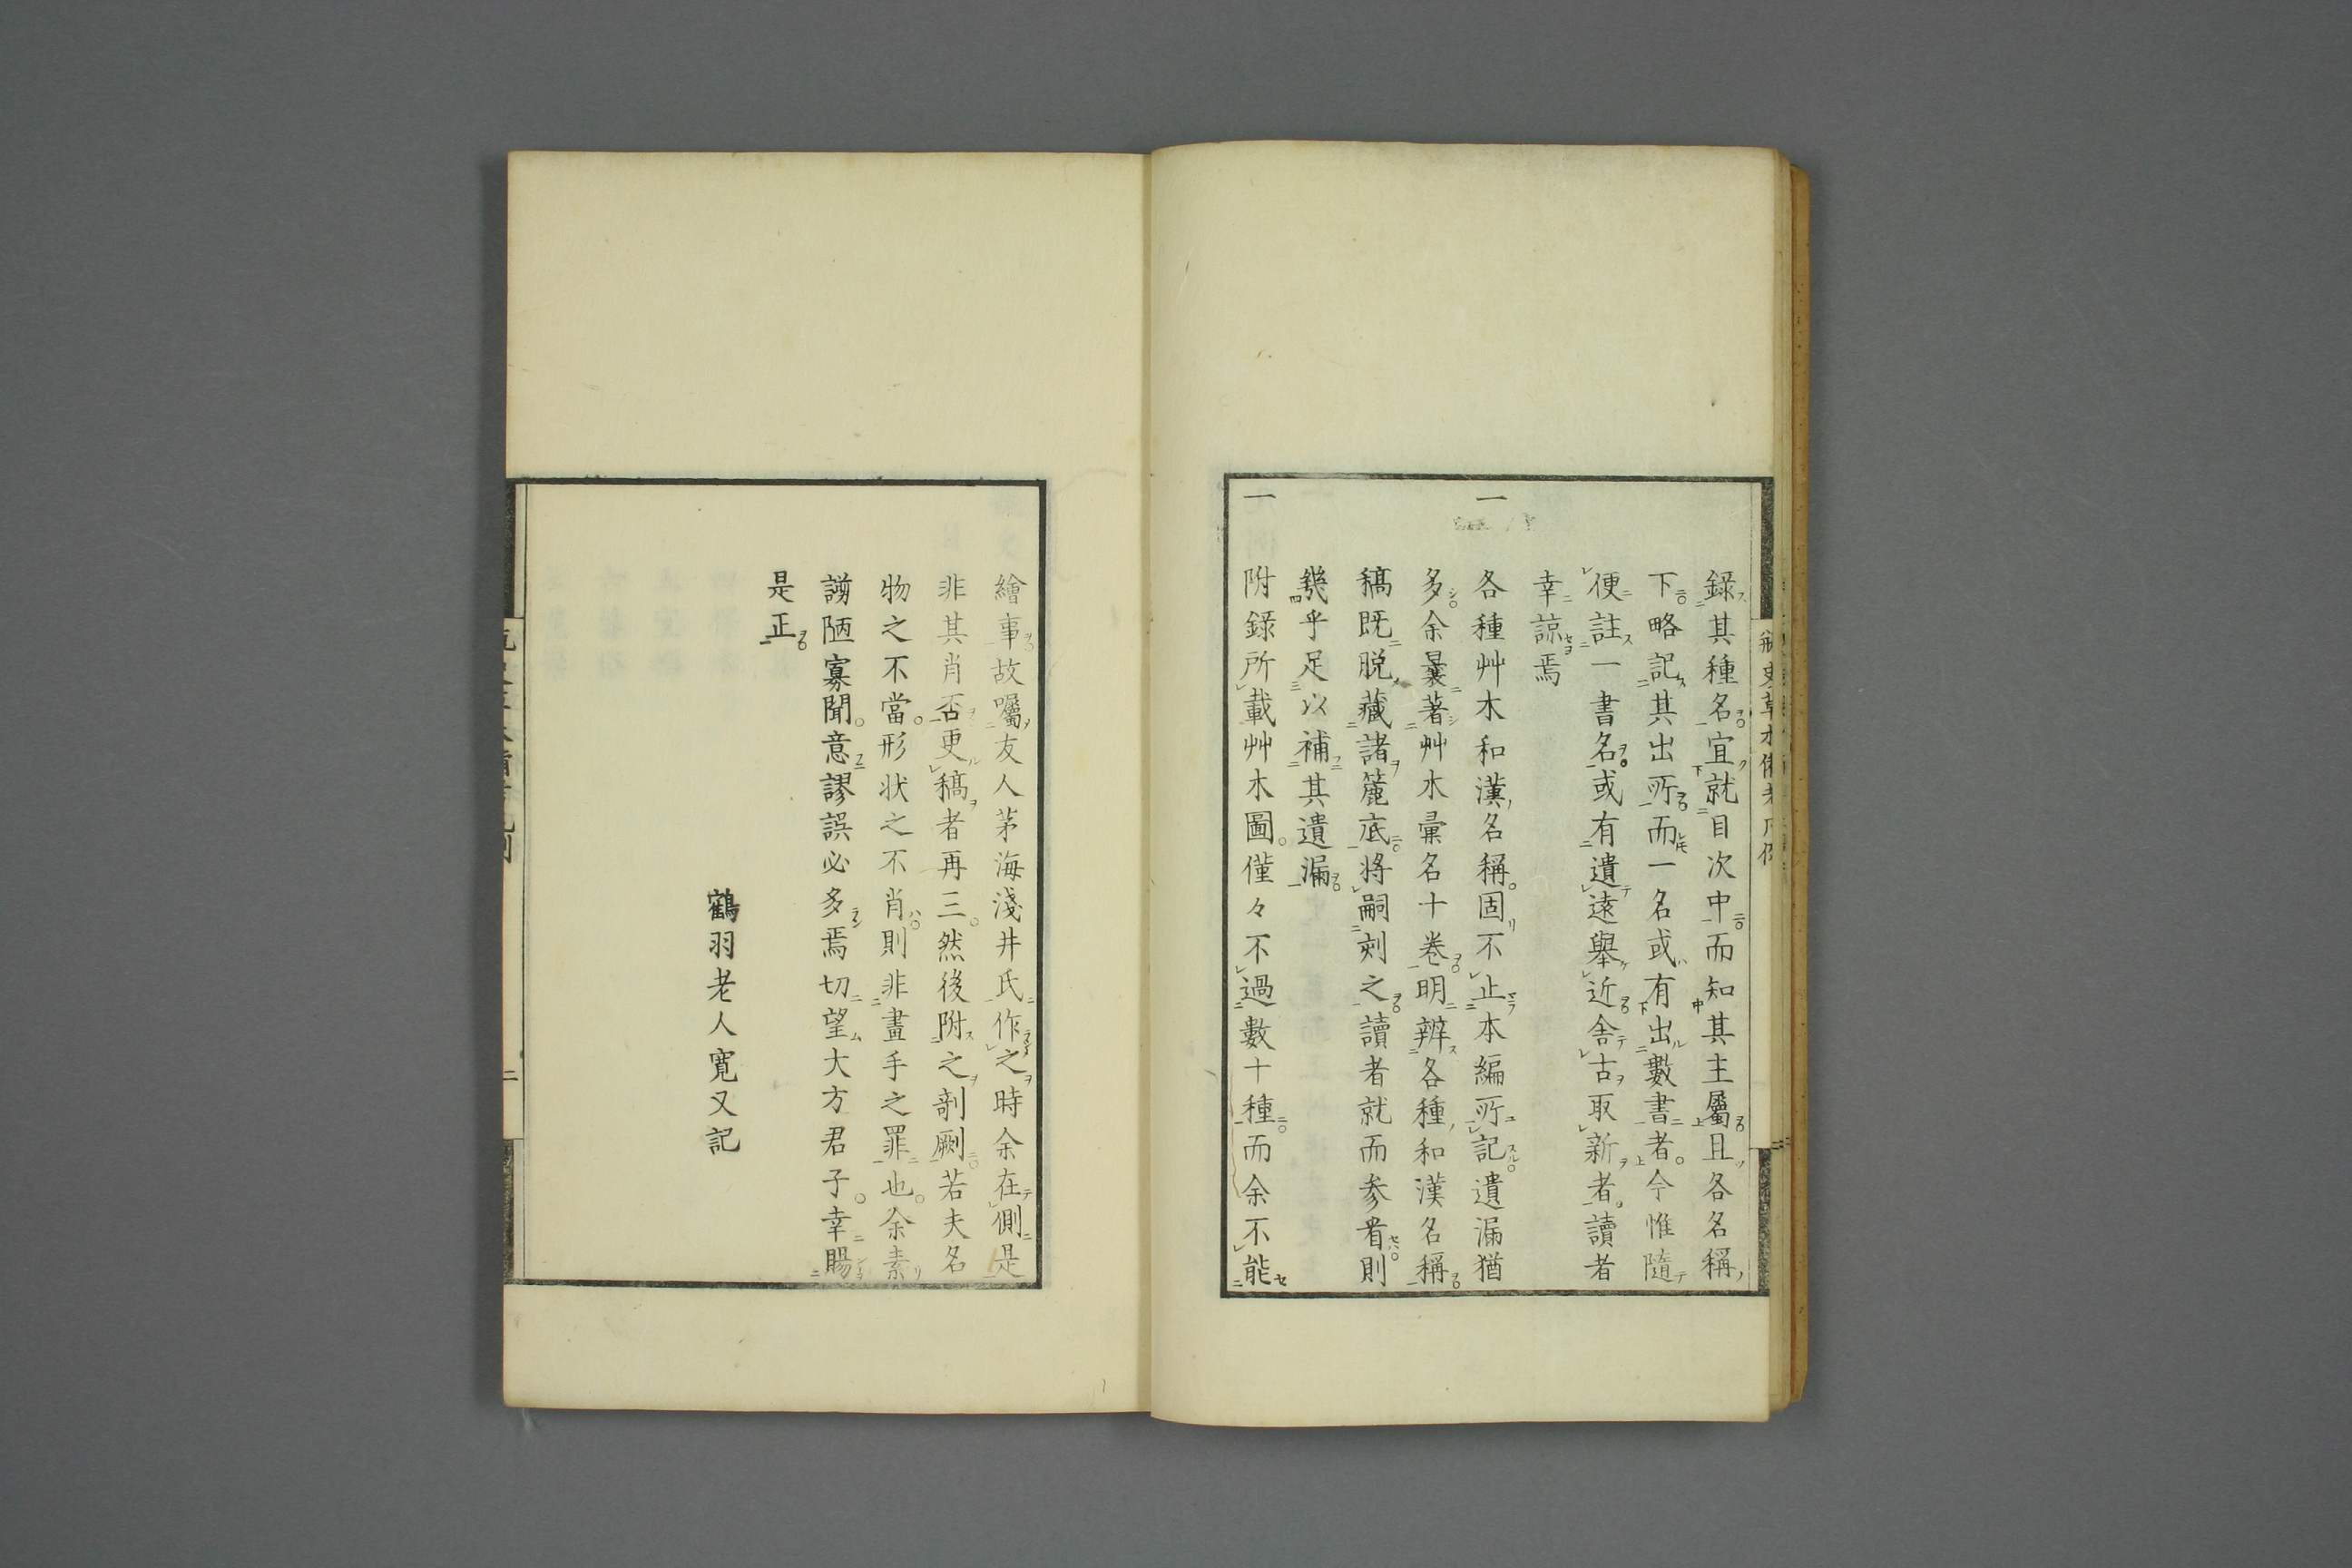 錄其種名宜就目次中而知其主屬且各名稱
下略記其出所而一名或有出數書者今惟隨
便註一書名或有遺遠舉近舍古取新者讀者
幸諒焉
一 各種艸木和漢名稱固不止本編所記遺漏猶
多余曩著艸木彙名十卷明辨各種和漢名稱
稿既脱藏諸簏底將嗣刻之讀者就而参看則
幾乎足以補其遺漏
一 附錄所載艸木圖僅々不過數十種而余不能
繪事故囑友人茅海淺井氏作之時余在側是
非其肖否更稿者再三然後附之剞劂若夫名
物之不當形状之不肖則非畫手之罪也余素
謭陋寡聞意謬誤必多焉切望大方君子幸賜
是正
鶴羽老人寛又記